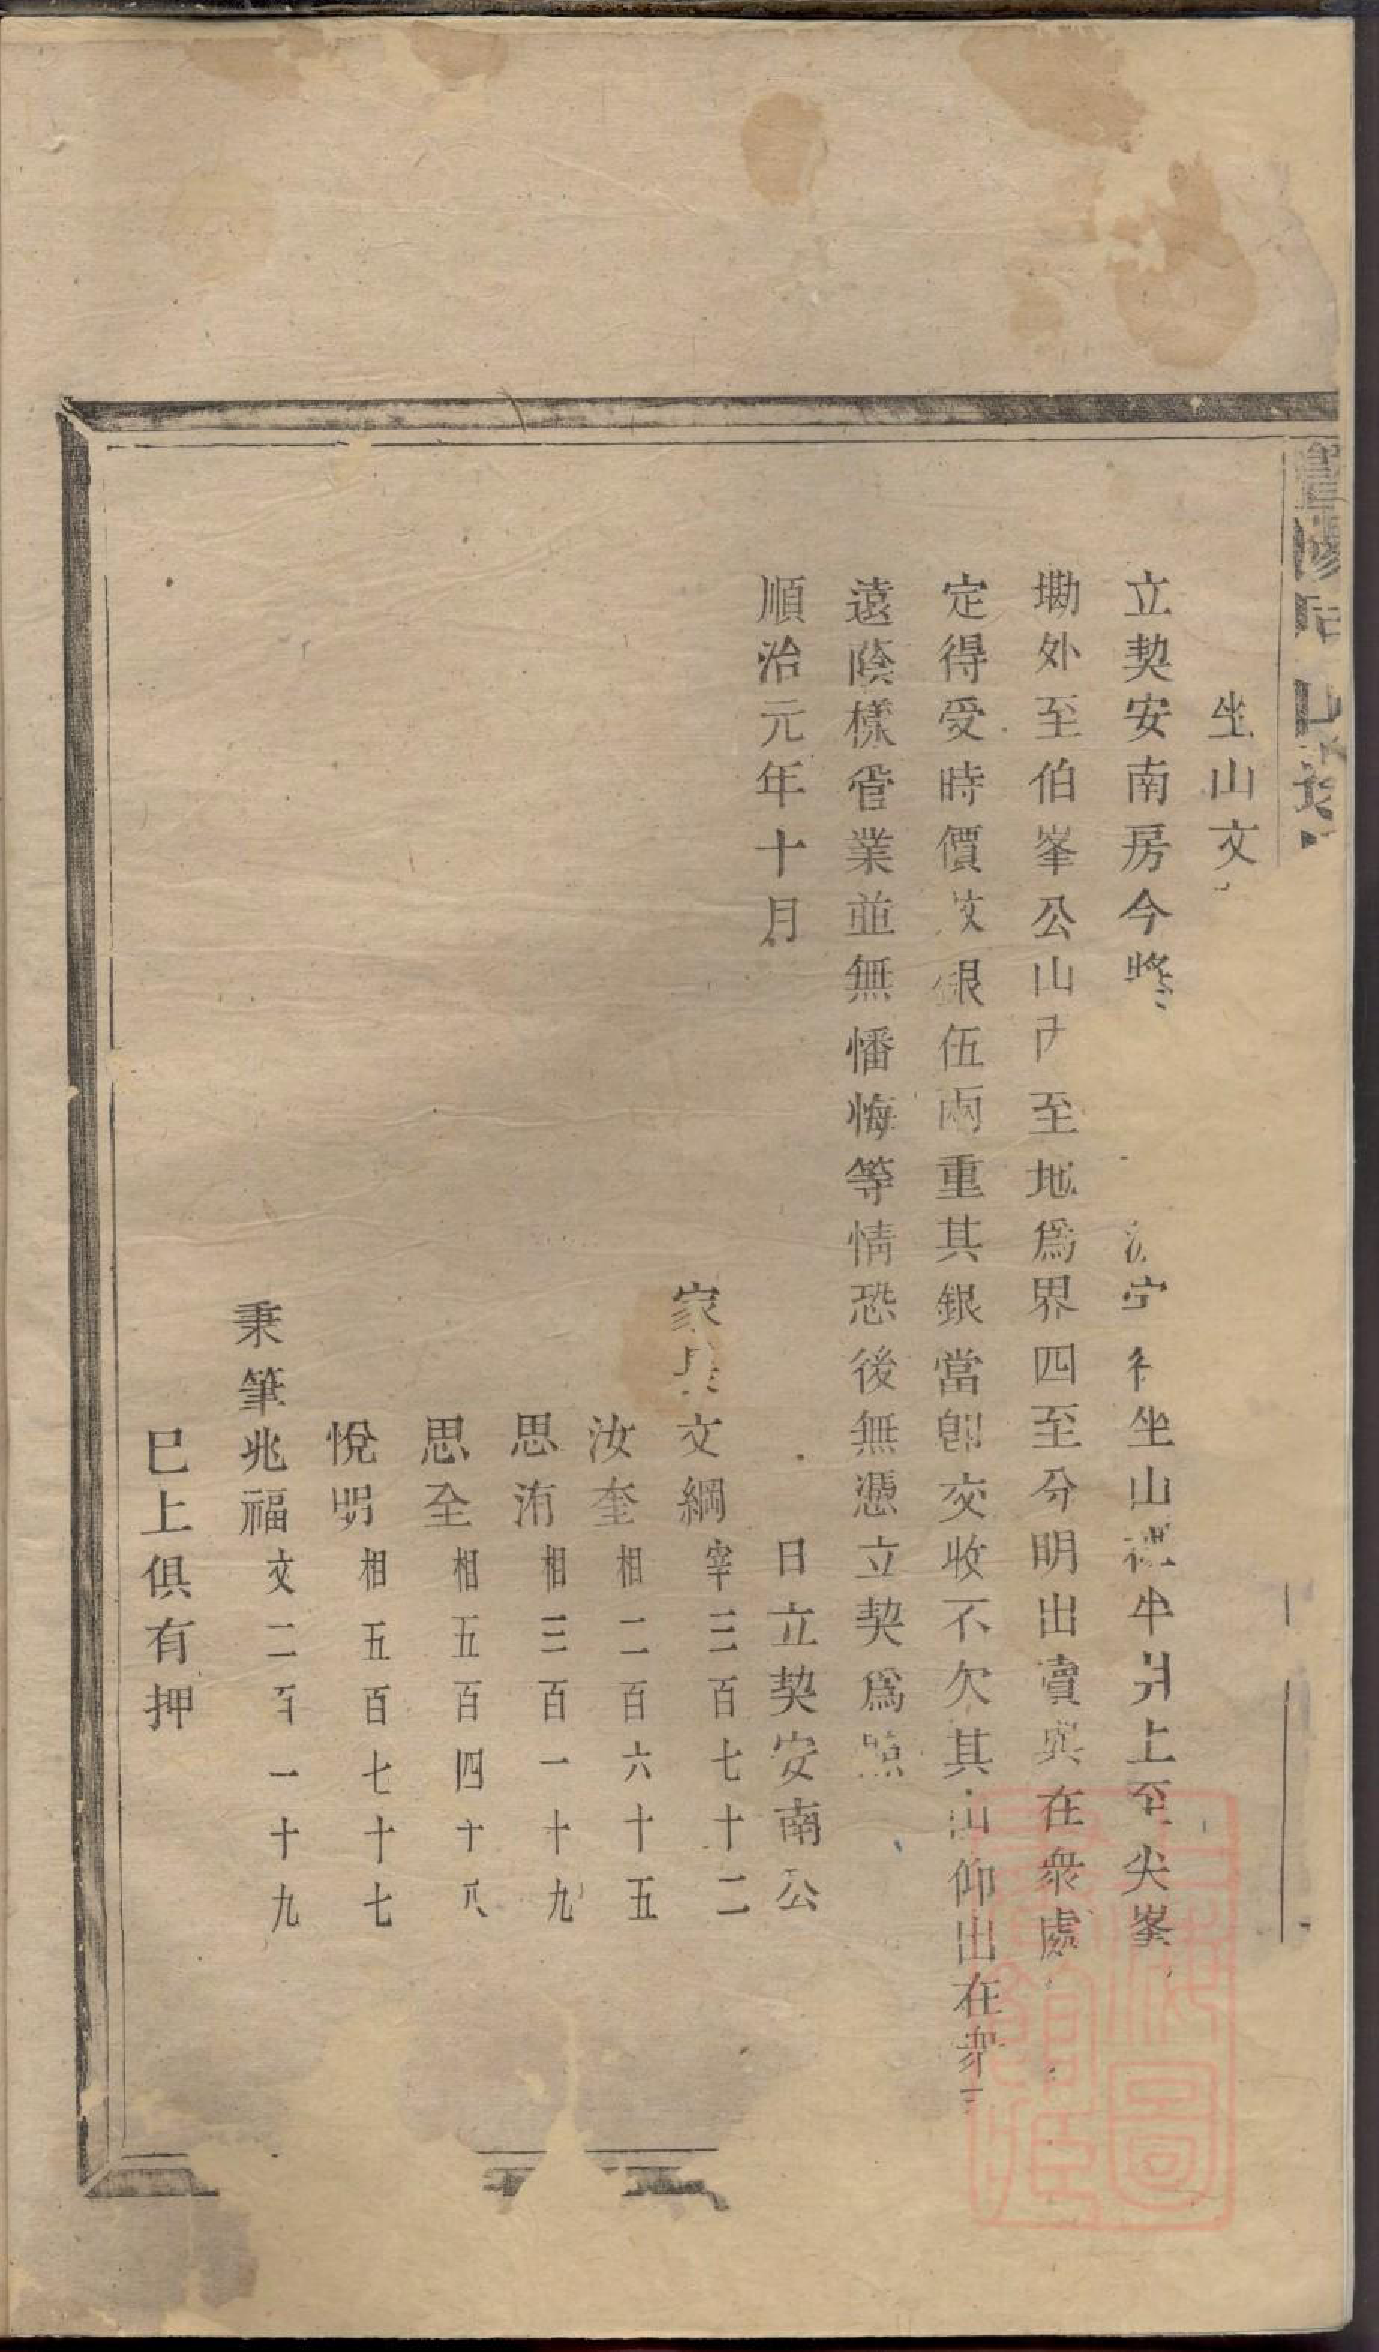 坐山文
立契安南房今將 坐山 半 上至尖峯
墈外至伯峯公山 至地爲界四至分明出賣與在衆處
定得受時價 銀伍兩重其銀當卽交收不欠其山仰出在衆
遠蔭樣管業並無憣悔等情恐後無憑立契爲照
順治元年十月 日立契安南公
家長文綱宰三百七十二
汝奎相二百六十五
思洧相三百一十九
思全相五百四十八
悅明相五百七十七
秉筆兆福文二百一十九
巳上俱有押